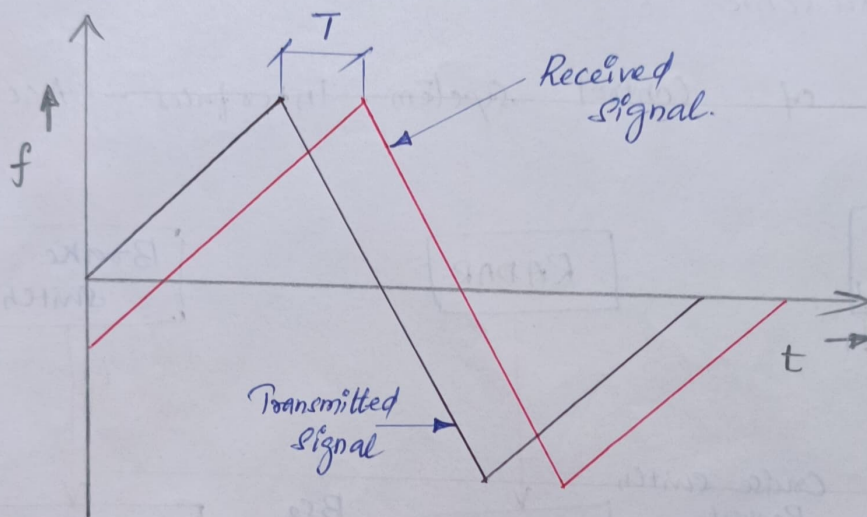 T
Received
Signal.
f
t
Transmitted
Signal